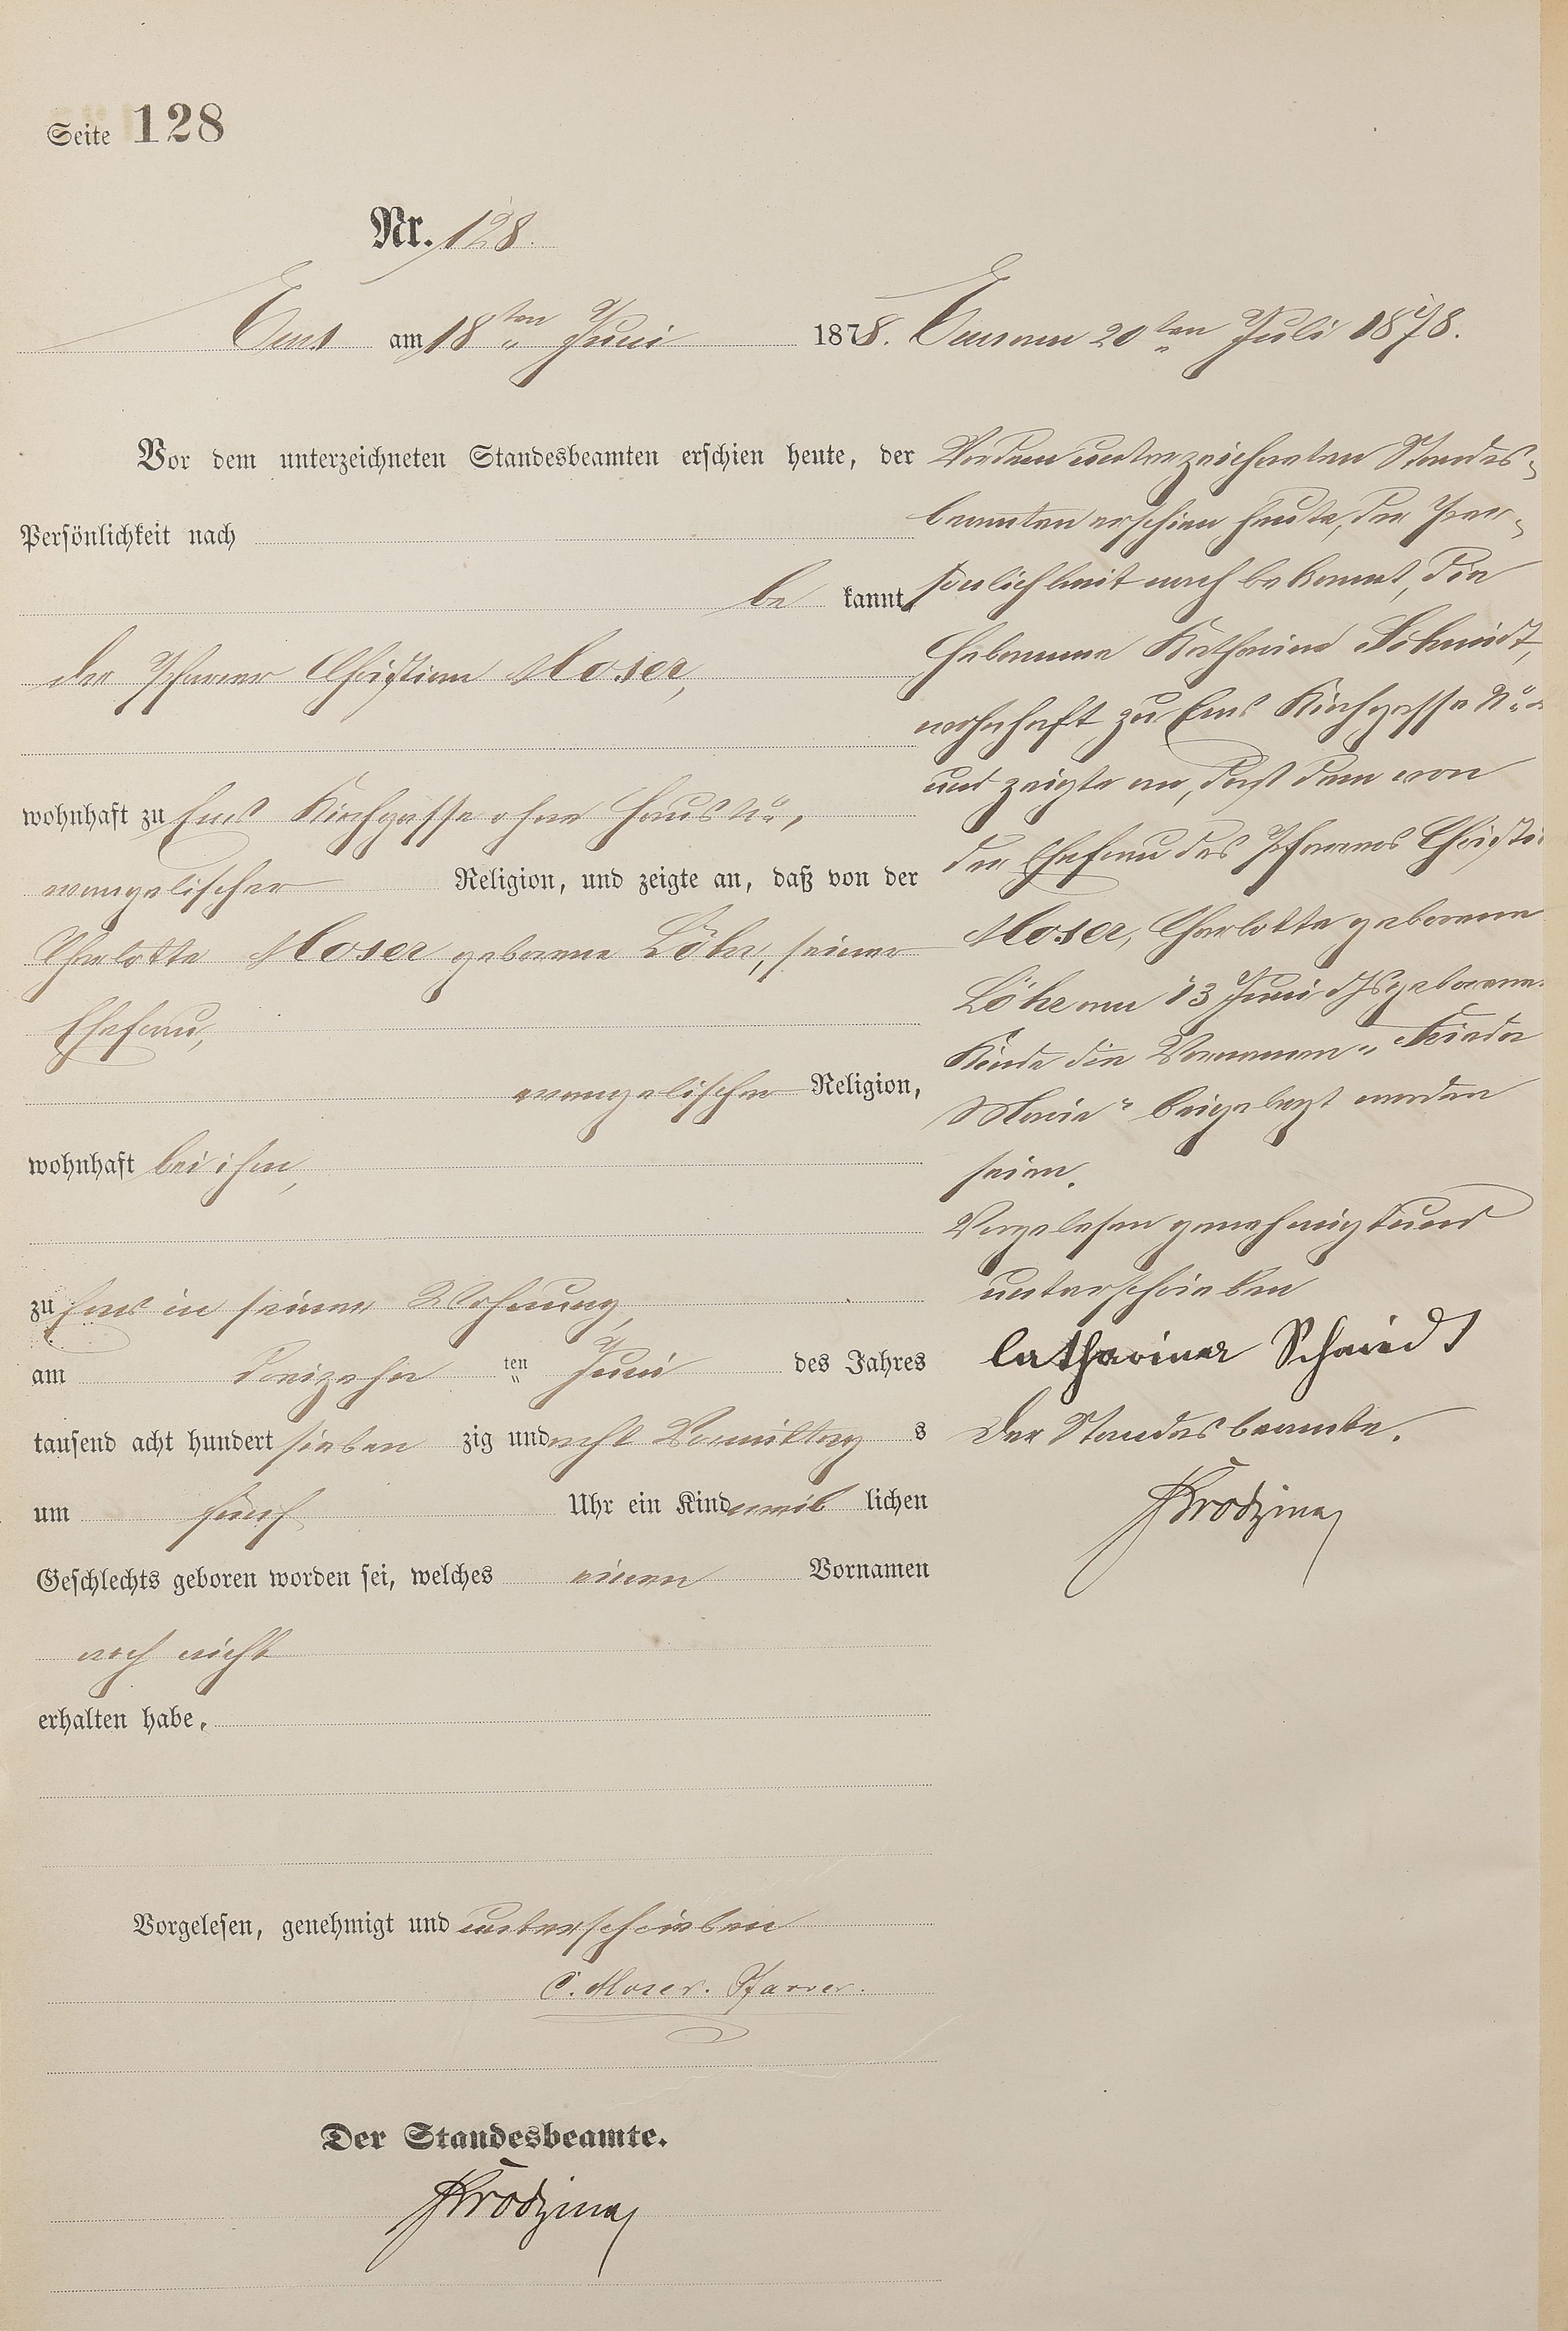 Seite 128
Nr. 128.
Ems am 18ten Juni 1878.
Vor dem unterzeichneten Standesbeamten erschien heute, der
Persönlichkeit nach
be kannt,
der Pfarrer Christian Moser,
wohnhaft zu Ems Kirchgasse ohne Haus No,
evangelischer Religion, und zeigte an, daß von der
Charlotte Moser geborene Löhr, seiner
Ehefrau,
evangelischer Religion,
wohnhaft bei ihm,
zu Ems in seiner Wohnung,
am dreizehn ten Juni des Jahres
tausend acht hundert sieben zig und acht Vormittag s
um fünf Uhr ein Kind weib lichen
Geschlechts geboren worden sei, welches einen Vornamen
noch nicht
erhalten habe.
Vorgelesen, genehmigt und unterschrieben
C. Moser. Pfarrer.
Der Standesbeamte.
Ems am 20ten Juli 1878.
Vor dem unterzeichneten Standes-
beamten erschien heute, der Per-
sönlichkeit nach bekannt, die
Hebamme Katharina Schmidt,
wohnhaft zu Ems Kirchgasse No
und zeigte an, daß dem von
der Ehefrau des Pfarrers Christi
Moser, Charlotte geborene
Löhr am 13 Juni geborenen
Kinde die Vornamen „Frieda
Marie“ beigelegt worden
seien.
Vorgelesen genehmigt und
unterschrieben
Catharina Schmidt
Der Standesbeamte.